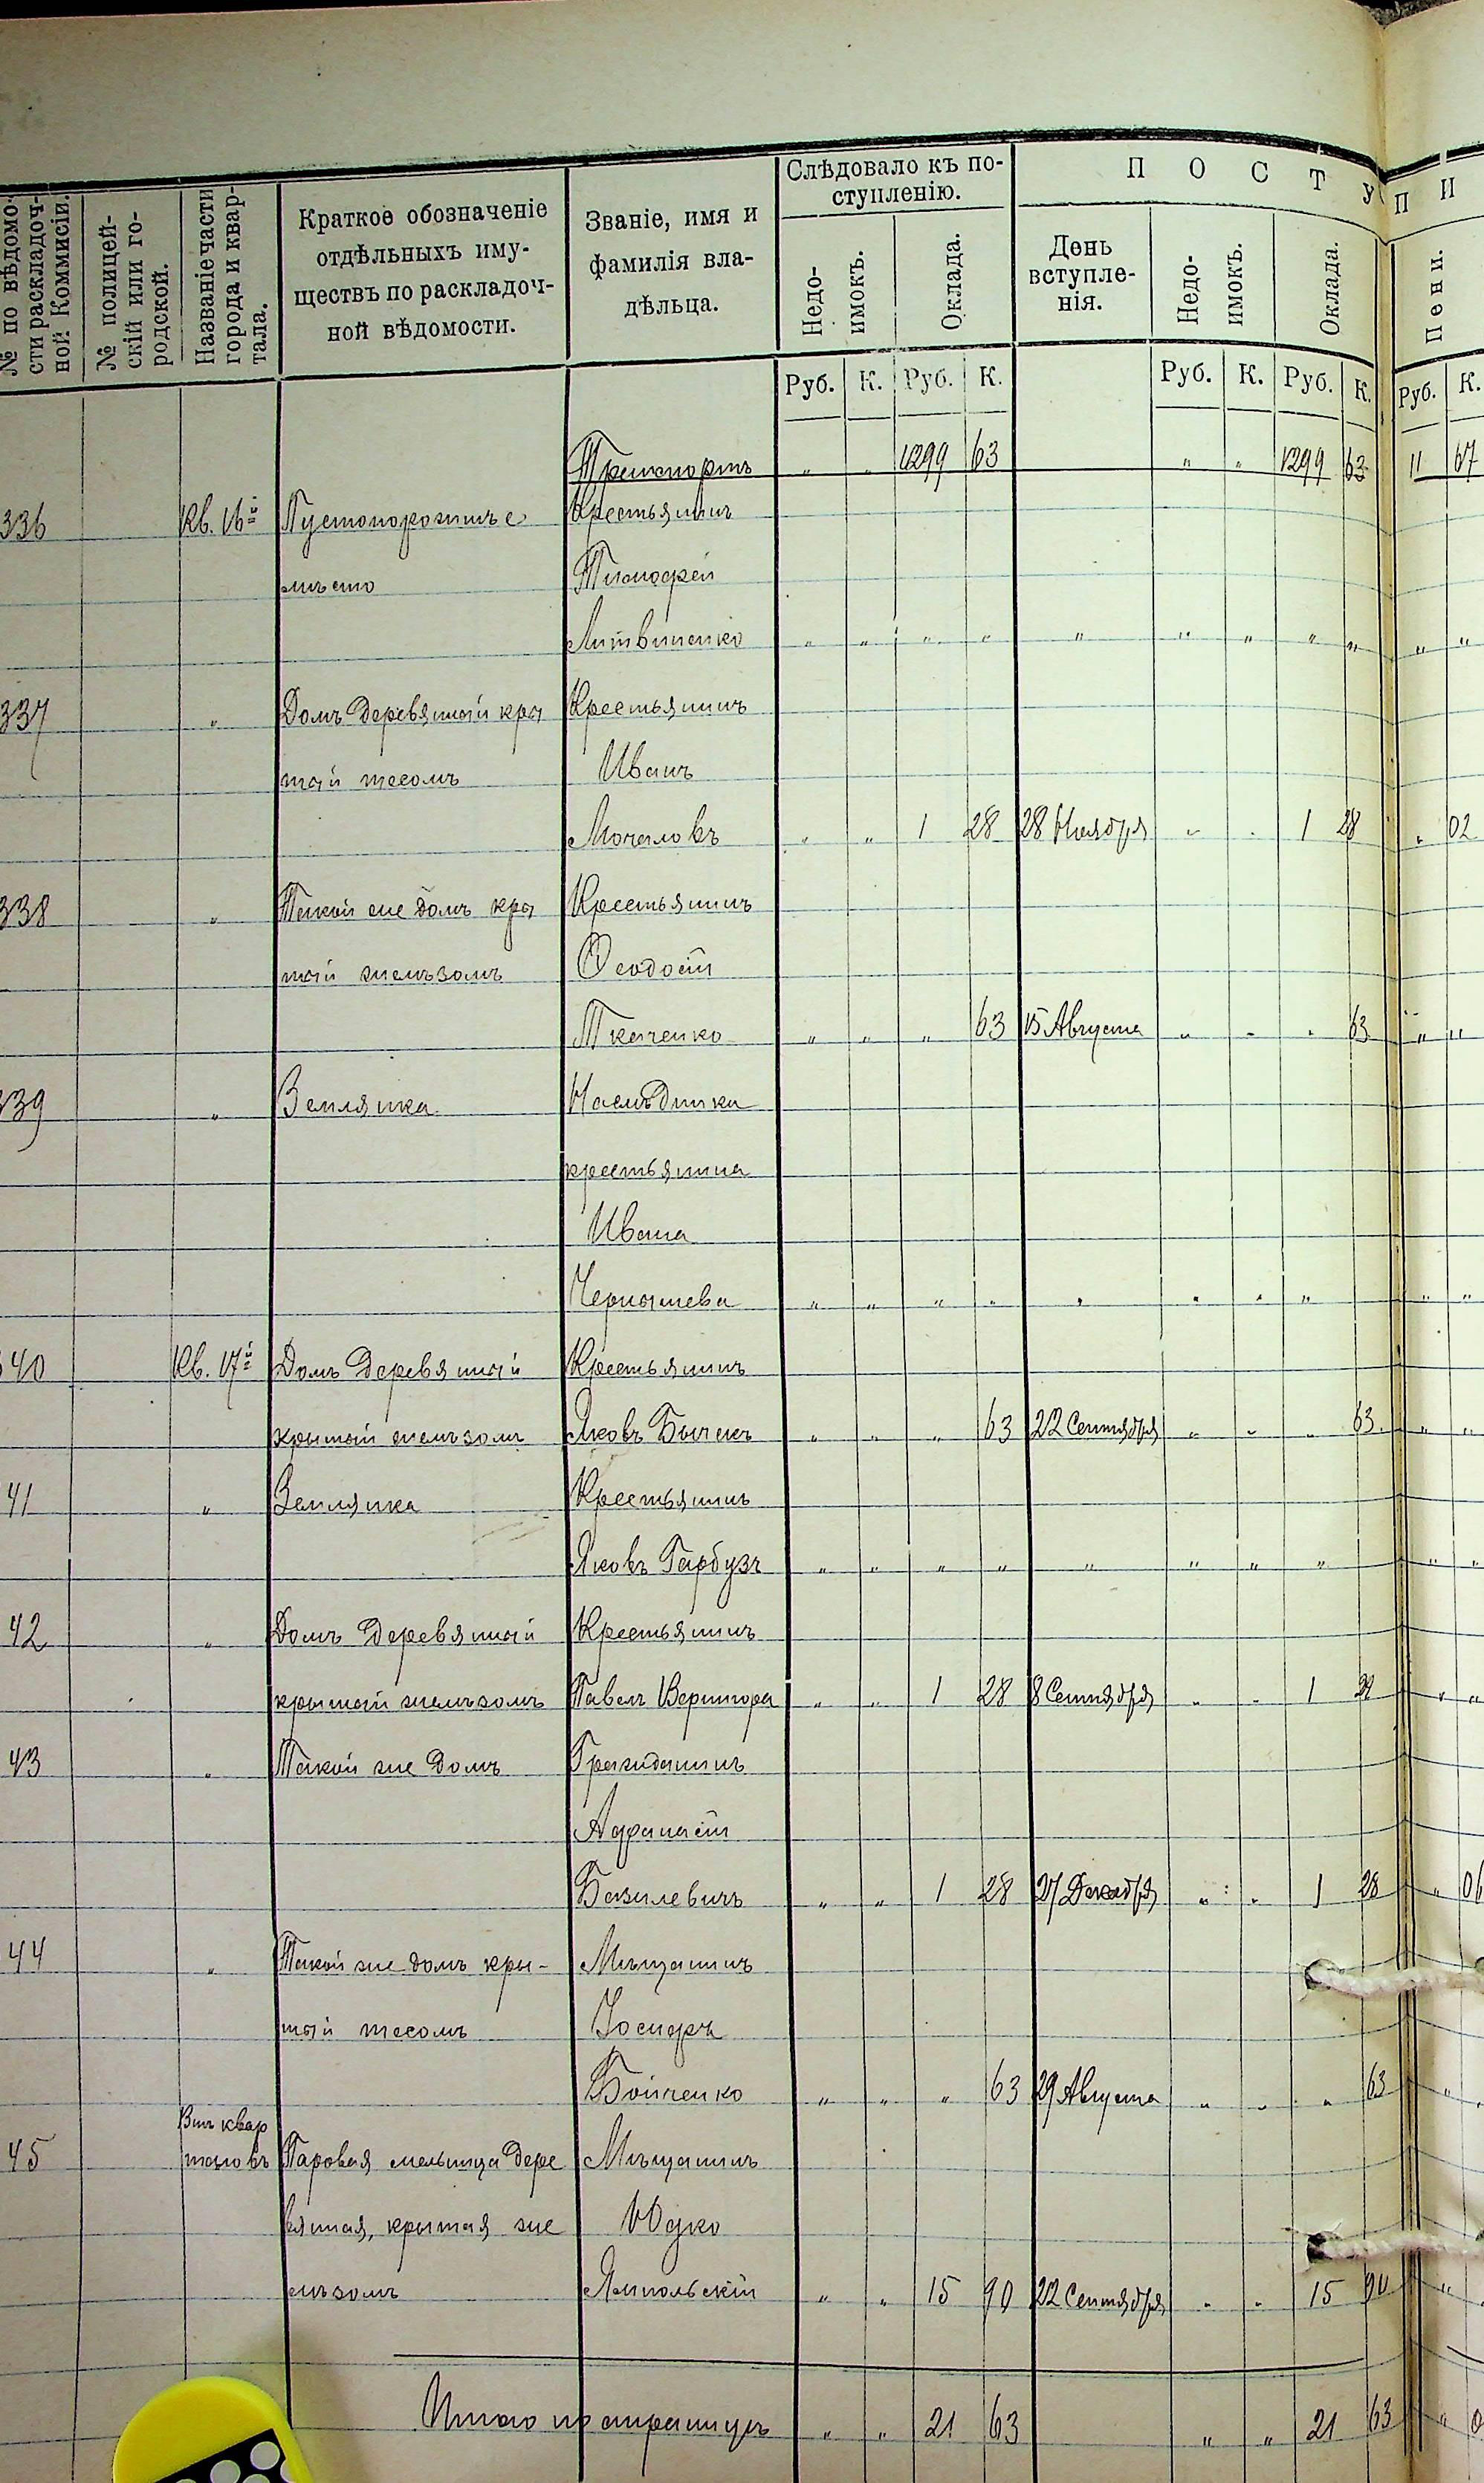 № по вѣдомо-
сти раскладоч-
ной Коммисіи.
№ полицей-
скій или го-
родской.
Названіе части
города и квар-
тала.
Краткое обозначеніе
отдѣльныхъ иму-
ществъ по раскладоч-
ной вѣдомости.
Званіе, имя и
фамилія вла-
дѣльца.
Слѣдовало къ по-
ступленію.
Недо-
имокъ.
Оклада.
П О С Т У П И
День
вступле-
нія.
Недо-
имокъ.
Оклада.
Пени.
Руб. К. Руб. К. Руб. К. Руб. К. Руб. К.
Транспортъ " " 1299 63 " " 1299 63 11 67
336 Кв. 16й Пустопорожнее Крестьянинъ
мѣсто Тимофей
Литвиненко " " " " " " " " " " "
337 " Домъ деревянный кры Крестьянинъ
тый тесомъ Иванъ
Мочаловъ " " 1 28 28 Ноября " " 1 28 " 02
338 " Такой же домъ кры Крестьянинъ
тый желѣзомъ Ѳеодосій
Ткаченко " " " 63 15 Августа " " " 63 " "
339 " Землянка Наслѣдники
крестьянина
Ивана
Чернышева " " " " " " " " " "
340 Кв. 17й Домъ деревянный Крестьянинъ
крытый желѣзомъ Яковъ Бычекъ " " " 63 22 Сентября " " " 63 " "
41 " Землянка Крестьянинъ
Яковъ Гарбузъ " " " " " " " " " "
42 " Домъ деревянный Крестьянинъ
крытый желѣзомъ Павелъ Вернигора " " 1 28 8 Сентября " " 1 28 " "
43 " Такой же домъ Гражданинъ
Афанасій
Базилевичъ " " 1 28 27 Декабря " " 1 28 " 06
44 " Такой же домъ кры- Мѣщанинъ
тый тесомъ Іосифъ
Бойченко " " " 63 29 Августа " " " 63 "
Внѣ квар
45 таловъ Паровая мельница дере Мѣщанинъ
вянная, крытая же Юдко
лѣзомъ Ямпольскій " " 15 90 22 Сентября " " 15 90 "
Итого по страницѣ " " 21 63 " " 21 63 "